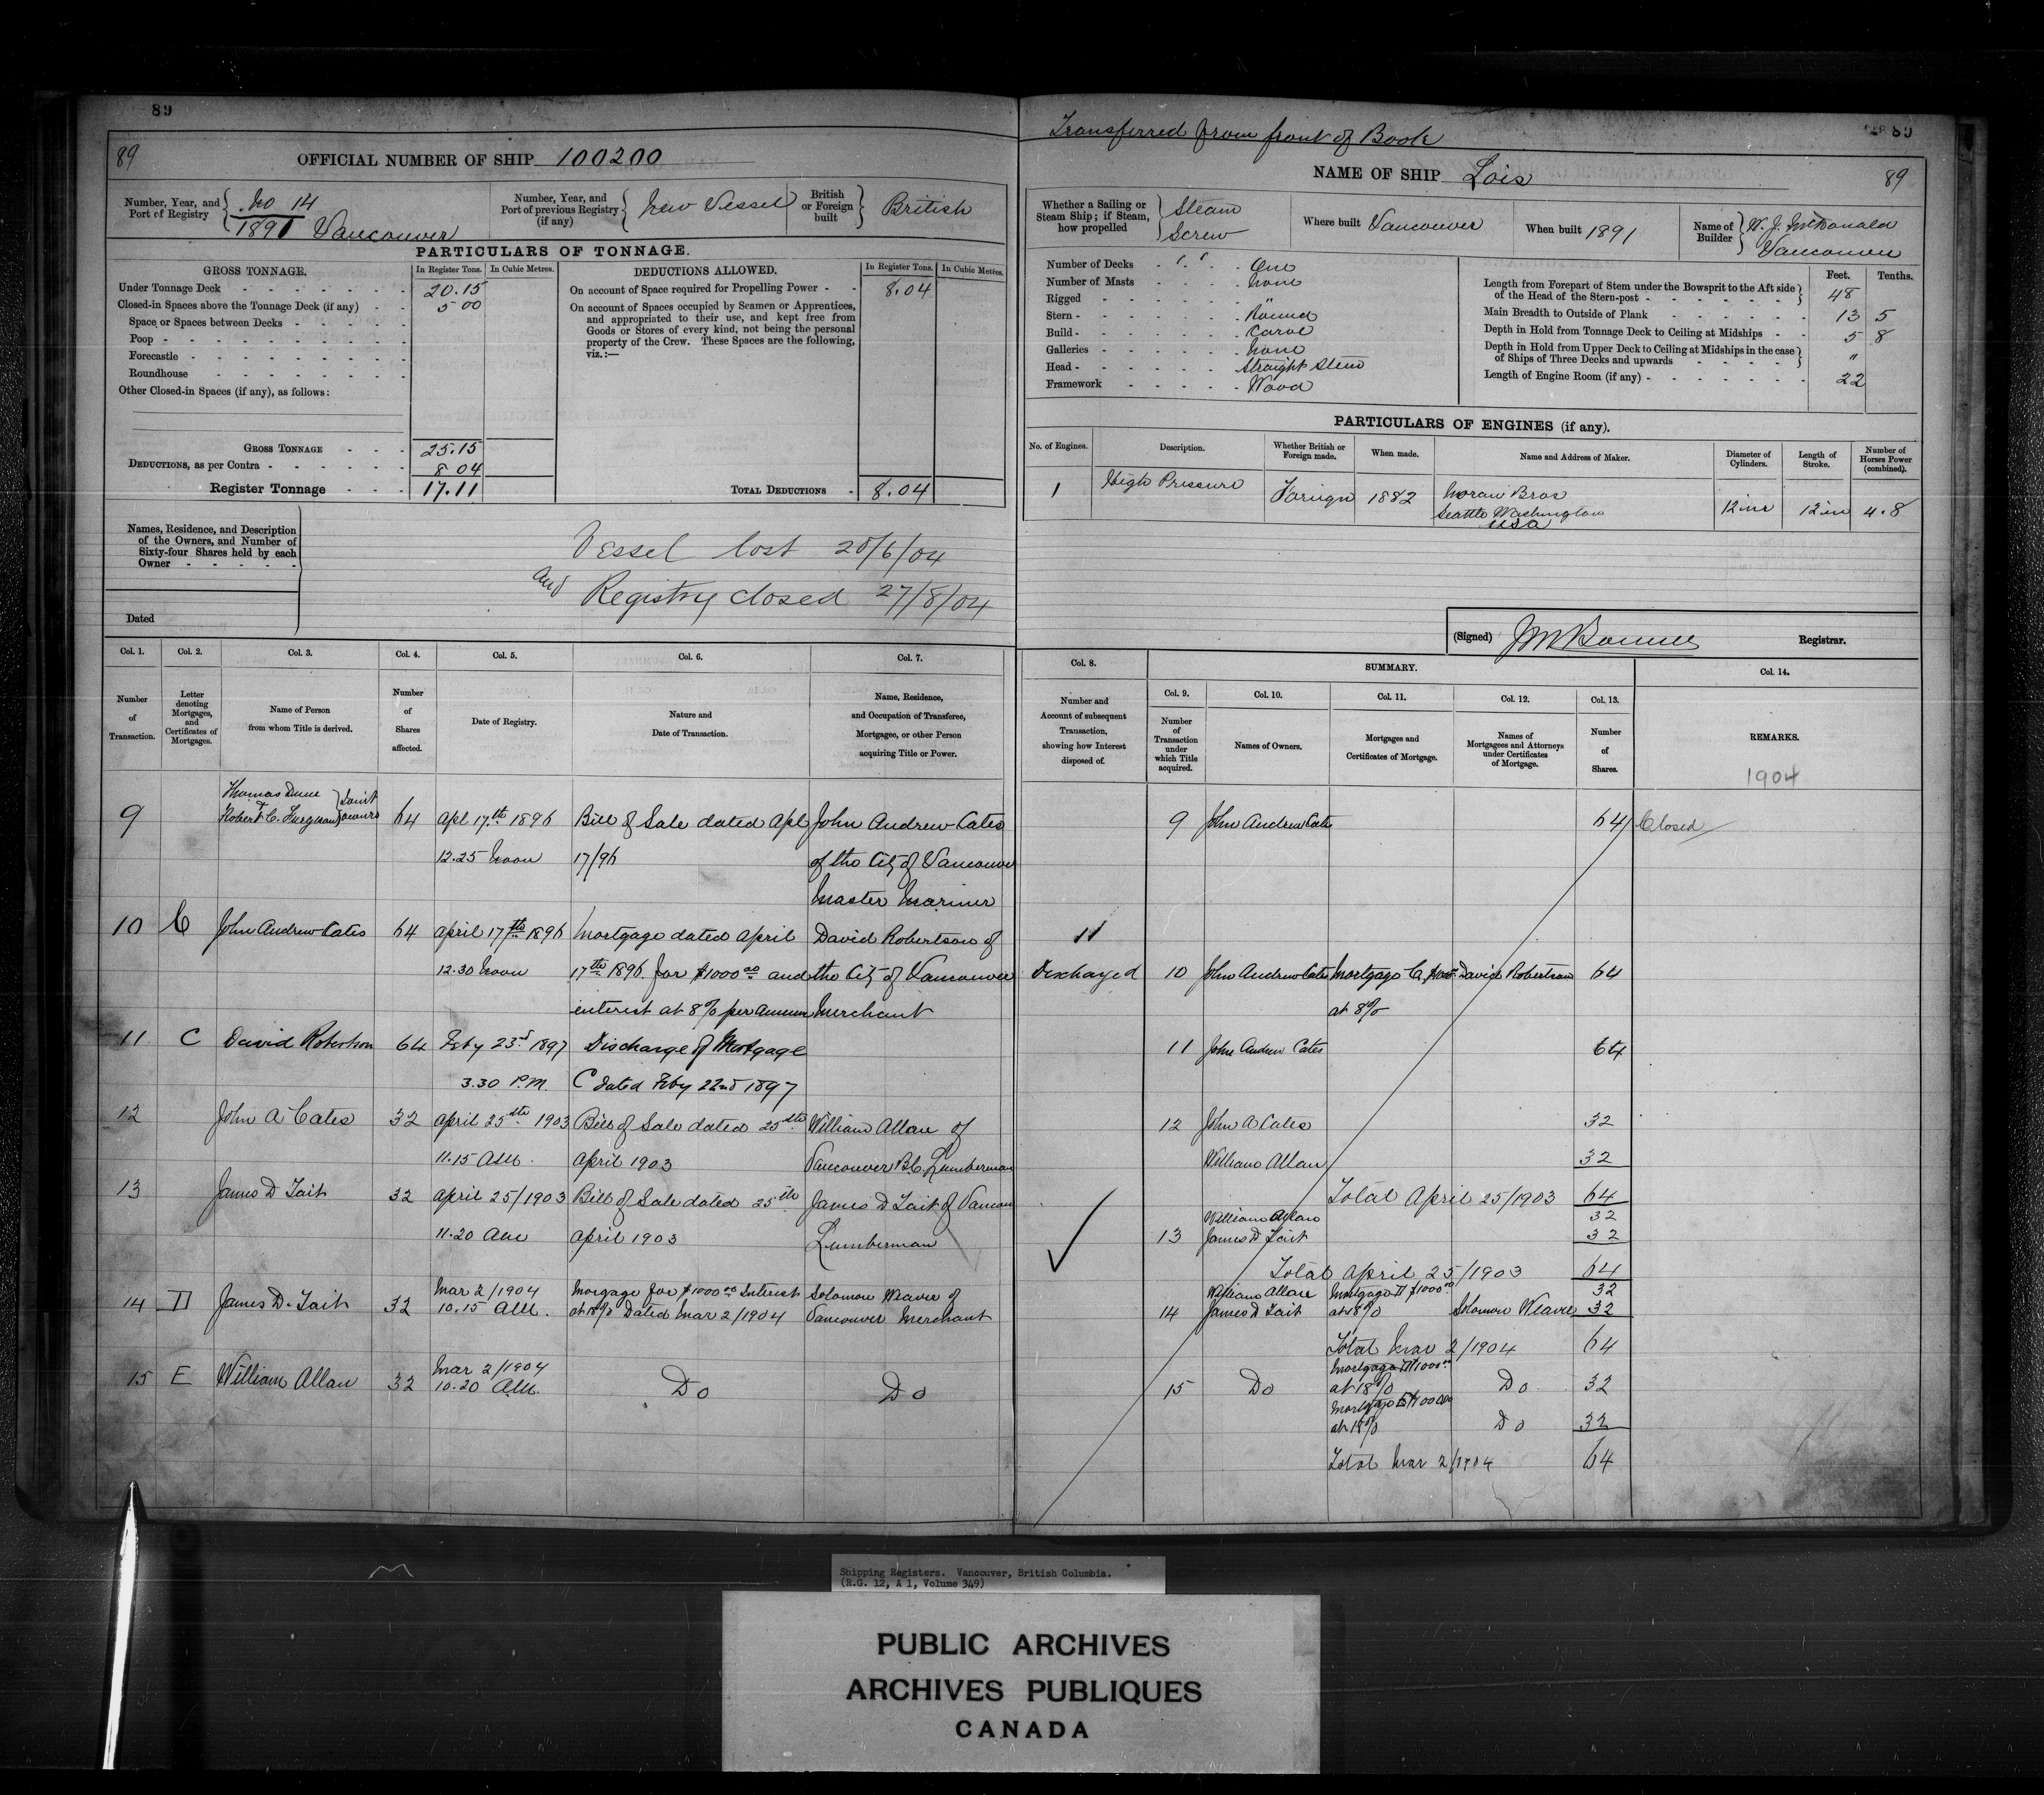 89
89
OFFICIAL NUMBER OF SHIP 100200
Number, Year, and Port of Registry
No 14
1891 Vancouver
Number, Year, and Port of previous Registry (if any)
New Vessel
British or Foreign built
British
PARTICULARS OF TONNAGE.
GROSS TONNAGE.
In Register Tons.
In Cubic Metres.
DEDUCTIONS ALLOWED.
In Register Tons.
In Cubic Metres.
Under Tonnage Deck 20.15
Closed-in Spaces above the Tonnage Deck (if any) 5 00
Space or Spaces between Decks
Poop
Forecastle
Roundhouse
Other Closed-in Spaces (if any), as follows:
On account of Space required for Propelling Power 8.04
On account of Spaces occupied by Seamen or Apprentices,
and appropriated to their use, and kept free from
Goods or Stores of every kind, not being the personal
property of the Crew. These Spaces are the following,
viz.:—
GROSS TONNAGE 25.15
DEDUCTIONS, as per Contra 8 04
Register Tonnage 17.11
TOTAL DEDUCTIONS 8.04
Names, Residence, and Description
of the Owners, and Number of
Sixty-four Shares held by each
Owner
Dated
Vessel lost 20/6/04
and Registry closed 27/8/04
Col. 1.
Col. 2.
Col. 3.
Col. 4.
Col. 5.
Col. 6.
Col. 7.
Number of Transaction.
Letter denoting Mortgages, and Certificates of Mortgages.
Name of Person from whom Title is derived.
Number of Shares affected.
Date of Registry.
Nature and Date of Transaction.
Name, Residence, and Occupation of Transferee, Mortgagee, or other Person acquiring Title or Power.
Thomas Dunn
9 Robert C. Furguson Joint owners 64 Apl 17th 1896 Bill of Sale dated Apl John Andrew Cates
12.25 Noon 17/96 of the City of Vancouver
Master Mariner
10 C John Andrew Cates 64 April 17th 1896 Mortgage dated April David Robertson of
12.30 Noon 17th 1896 for $1000 00 and the City of Vancouver
interest at 8% per annum Merchant
11 C David Robertson 64 Feby 23rd 1897 Discharge of Mortgage
3.30 P.M. C dated Feby 22nd 1897
12 John A Cates 32 April 25th 1903 Bill of Sale dated 25th William Allan of
11.15 AM. April 1903 Vancouver B.C. Lumberman
13 James D Tait 32 April 25/1903 Bill of Sale dated 25th James D Tait of Vancou
11.20 AM April 1903 Lumberman
Mar 2/1904 Morgage for $1000 00 Interest Solomon Weaver of
14 D James D. Tait 32 10.15 AM. at 18% Dated Mar 2/1904 Vancouver Merchant
Mar 2/1904
15 E William Allan 32 10.20 AM. Do Do
Transferred from front of Book
89
89
NAME OF SHIP Lois
Whether a Sailing or Steam Ship; if Steam, how propelled
Steam
Screw
Where built Vancouver
When built 1891
Name of Builder
W. J. McDonald
Vancouver
Number of Decks One
Number of Masts None
Rigged "
Stern Round
Build Carvel
Galleries None
Head Straight Stem
Framework Wood
Feet.
Tenths.
Length from Forepart of Stem under the Bowsprit to the Aft side of the Head of the Stern-post 48
Main Breadth to Outside of Plank 13 5
Depth in Hold from Tonnage Deck to Ceiling at Midships 5 8
Depth in Hold from Upper Deck to Ceiling at Midships in the case of Ships of Three Decks and upwards "
Length of Engine Room (if any) 22
PARTICULARS OF ENGINES (if any).
No. of Engines.
Description.
Whether British or Foreign made.
When made.
Name and Address of Maker.
Diameter of Cylinders.
Length of Stroke.
Number of Horses Power (combined).
1 High Pressure Foreign 1882 Moran Bros 12 ins 12 in 4.8
Seattle Washington
USA
(Signed)
Registrar.
Col. 8.
SUMMARY.
Col. 14.
Col. 9.
Col. 10.
Col. 11.
Col. 12.
Col. 13.
Number and Account of subsequent Transaction, showing how Interest disposed of.
Number of Transaction under which Title acquired.
Names of Owners.
Mortgages and Certificates of Mortgage.
Names of Mortgagees and Attorneys under Certificates of Mortgage.
Number of Shares.
REMARKS.
1904
9 John Andrew Cates 64 Closed
11
Discharged 10 John Andrew Cates Mortgage C David Robertson 64
at 8%
11 John Andrew Cates 64
12 John A Cates 32
William Allan 32
Total April 25/1903 64
William Allan 32
13 James D Tait 32
Total April 25/1903 64
William Allan Mortgage D $1000 00 32
14 James D Tait at 18% Solomon Weaver 32
Total Mar 2/1904 64
Mortgage D 1000 00
15 Do at 18% Do 32
Mortgage E
at 18% Do 32
Total Mar 2/1904 64
Shipping Registers. Vancouver, British Columbia.
(R.G. 12, A 1, Volume 349)
PUBLIC ARCHIVES
ARCHIVES PUBLIQUES
CANADA